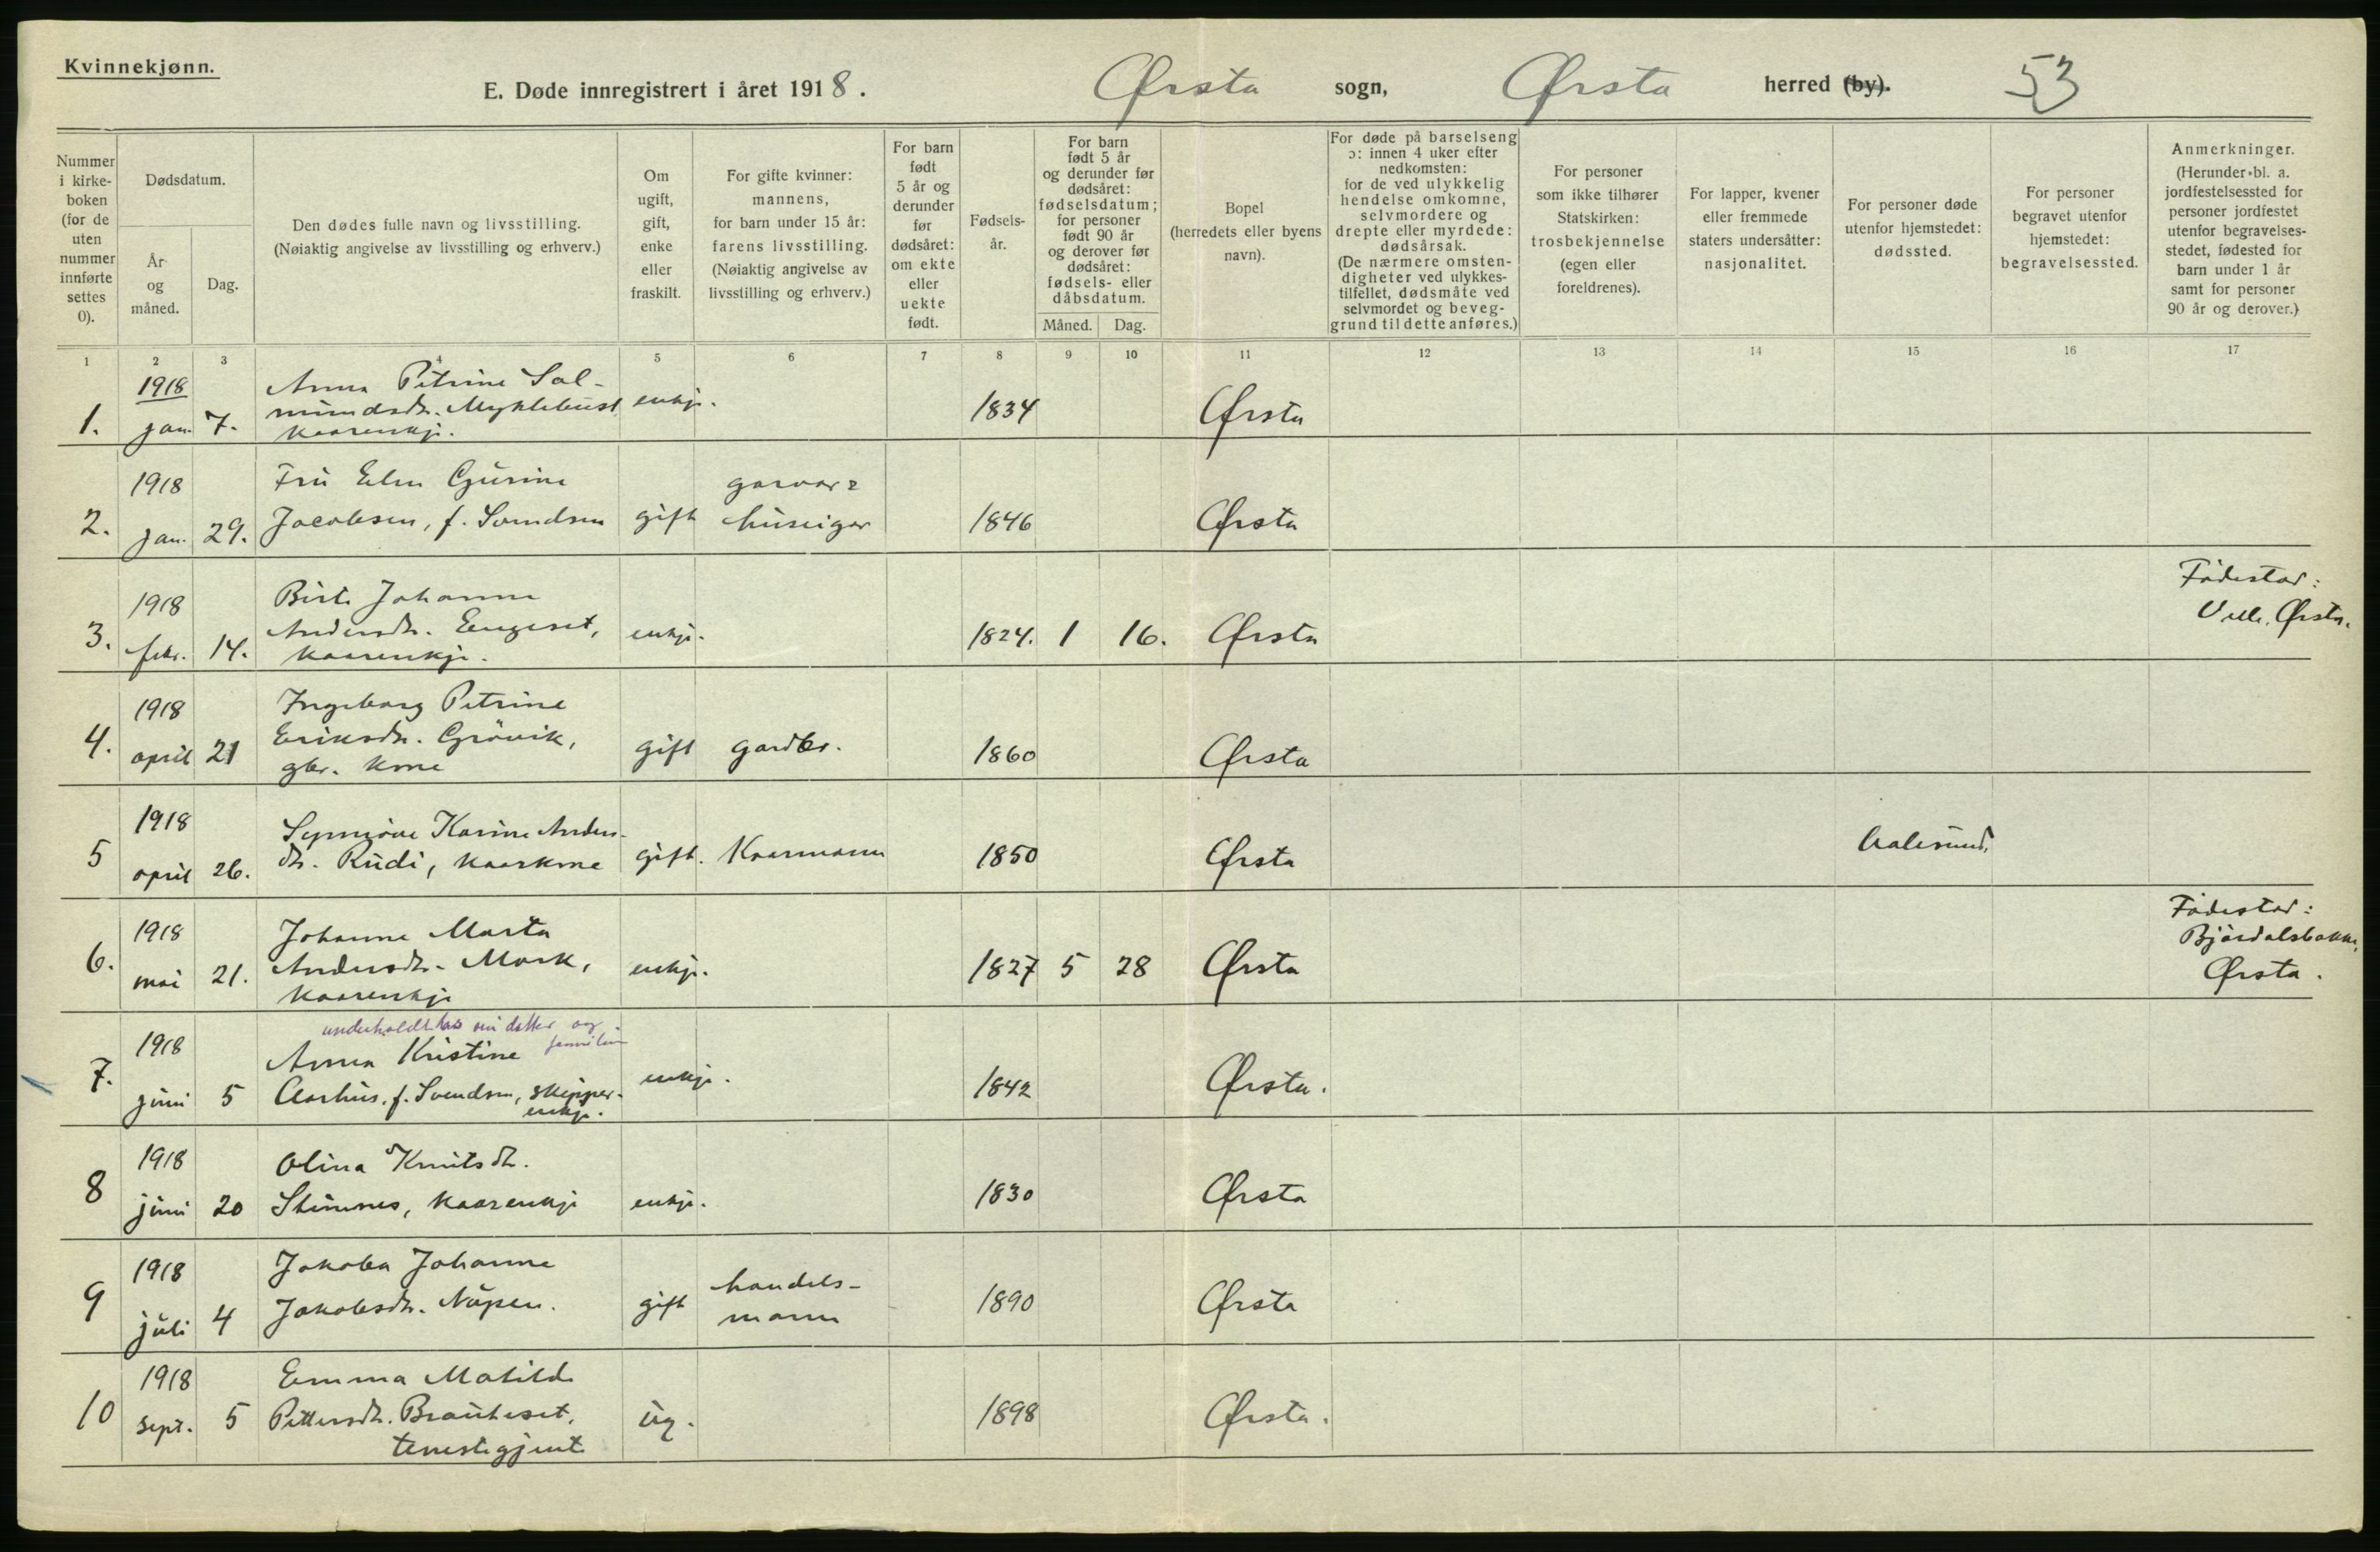 Kvinnekjønn.
E. Døde innregistrert i året 1918.
Ørsta sogn, Ørsta herred (by).
53
Nummer
i kirke-
boken
(for de
uten
nummer
innførte
settes
0).
Dødsdatum.
År
og
måned.
Dag.
Den dødes fulle navn og livsstilling.
(Nøiaktig angivelse av livsstilling og erhverv.)
Om
ugift,
gift,
enke
eller
fraskilt.
For gifte kvinner:
mannens,
for barn under 15 år:
farens livsstilling.
(Nøiaktig angivelse av
livsstilling og erhverv.)
For barn
født
5 år og
derunder
før
dødsåret:
om ekte
eller
uekte
født.
Fødsels-
år.
For barn
født 5 år
og derunder før
dødsåret:
fødselsdatum;
for personer
født 90 år
og derover før
dødsåret:
fødsels- eller
dåbsdatum.
Måned.
Dag.
Bopel
(herredets eller byens
navn).
For døde på barselseng
ɔ: innen 4 uker efter
nedkomsten:
for de ved ulykkelig
hendelse omkomne,
selvmordere og
drepte eller myrdede:
dødsårsak.
(De nærmere omsten-
digheter ved ulykkes-
tilfellet, dødsmåte ved
selvmordet og beveg-
grund til dette anføres.)
For personer
som ikke tilhører
Statskirken:
trosbekjennelse
(egen eller
foreldrenes).
For lapper, kvener
eller fremmede
staters undersåtter:
nasjonalitet.
For personer døde
utenfor hjemstedet:
dødssted.
For personer
begravet utenfor
hjemstedet:
begravelsessted.
Anmerkninger.
(Herunder bl. a.
jordfestelsessted for
personer jordfestet
utenfor begravelses-
stedet, fødested for
barn under 1 år
samt for personer
90 år og derover.)
1 2 3 4 5 6 7 8 9 10 11 12 13 14 15 16 17
1. 1918
jan. 7.
Anna Petrine Sal-
mundsdtr. Myklebust
kaarenkje.
enkje.
1834
Ørsta
2. 1918
jan. 29.
Fru Elen Gurine
Jacobsen, f. Svendsen
gift
garvar &
huseigar
1846
Ørsta
3. 1918
febr. 14.
Birte Johanne
Andersdtr. Engeset,
kaarenkje.
enkje.
1824. 1 16.
Ørsta
Fødestad:
Velle, Ørsta.
4. 1918
april 21
Ingeborg Petrine
Eriksdtr. Grövik,
gbr. kone
gift
gardbr.
1860
Ørsta
5 1918
april 26.
Synnöve Karine Anders-
dtr. Rudi, kaarkone
gift.
Kaarmann
1850
Ørsta
Aalesund.
6. 1918
mai 21.
Johanne Marta
Andersdtr. Mork,
kaarenkje
enkje.
1827 5 28
Ørsta
Fødestad:
Bjørdalsbakke,
Ørsta.
7. 1918
juni 5
underholdt hos sin datter og
familie
Anna Kristine
Aarhus, f. Svendsen, skipper-
enkje.
enkje.
1842
Ørsta.
8 1918
juni 20
Olina Knutsdtr.
Steinnes, kaarenkje
enkje.
1830
Ørsta
9 1918
juli 4
Jakoba Johanne
Jakobsdtr. Nupen.
gift
handels-
mann
1890
Ørsta
10 1918
sept. 5
Emma Matilde
Pettersdtr. Brauteset,
tenestegjente
ug.
1898
Ørsta.